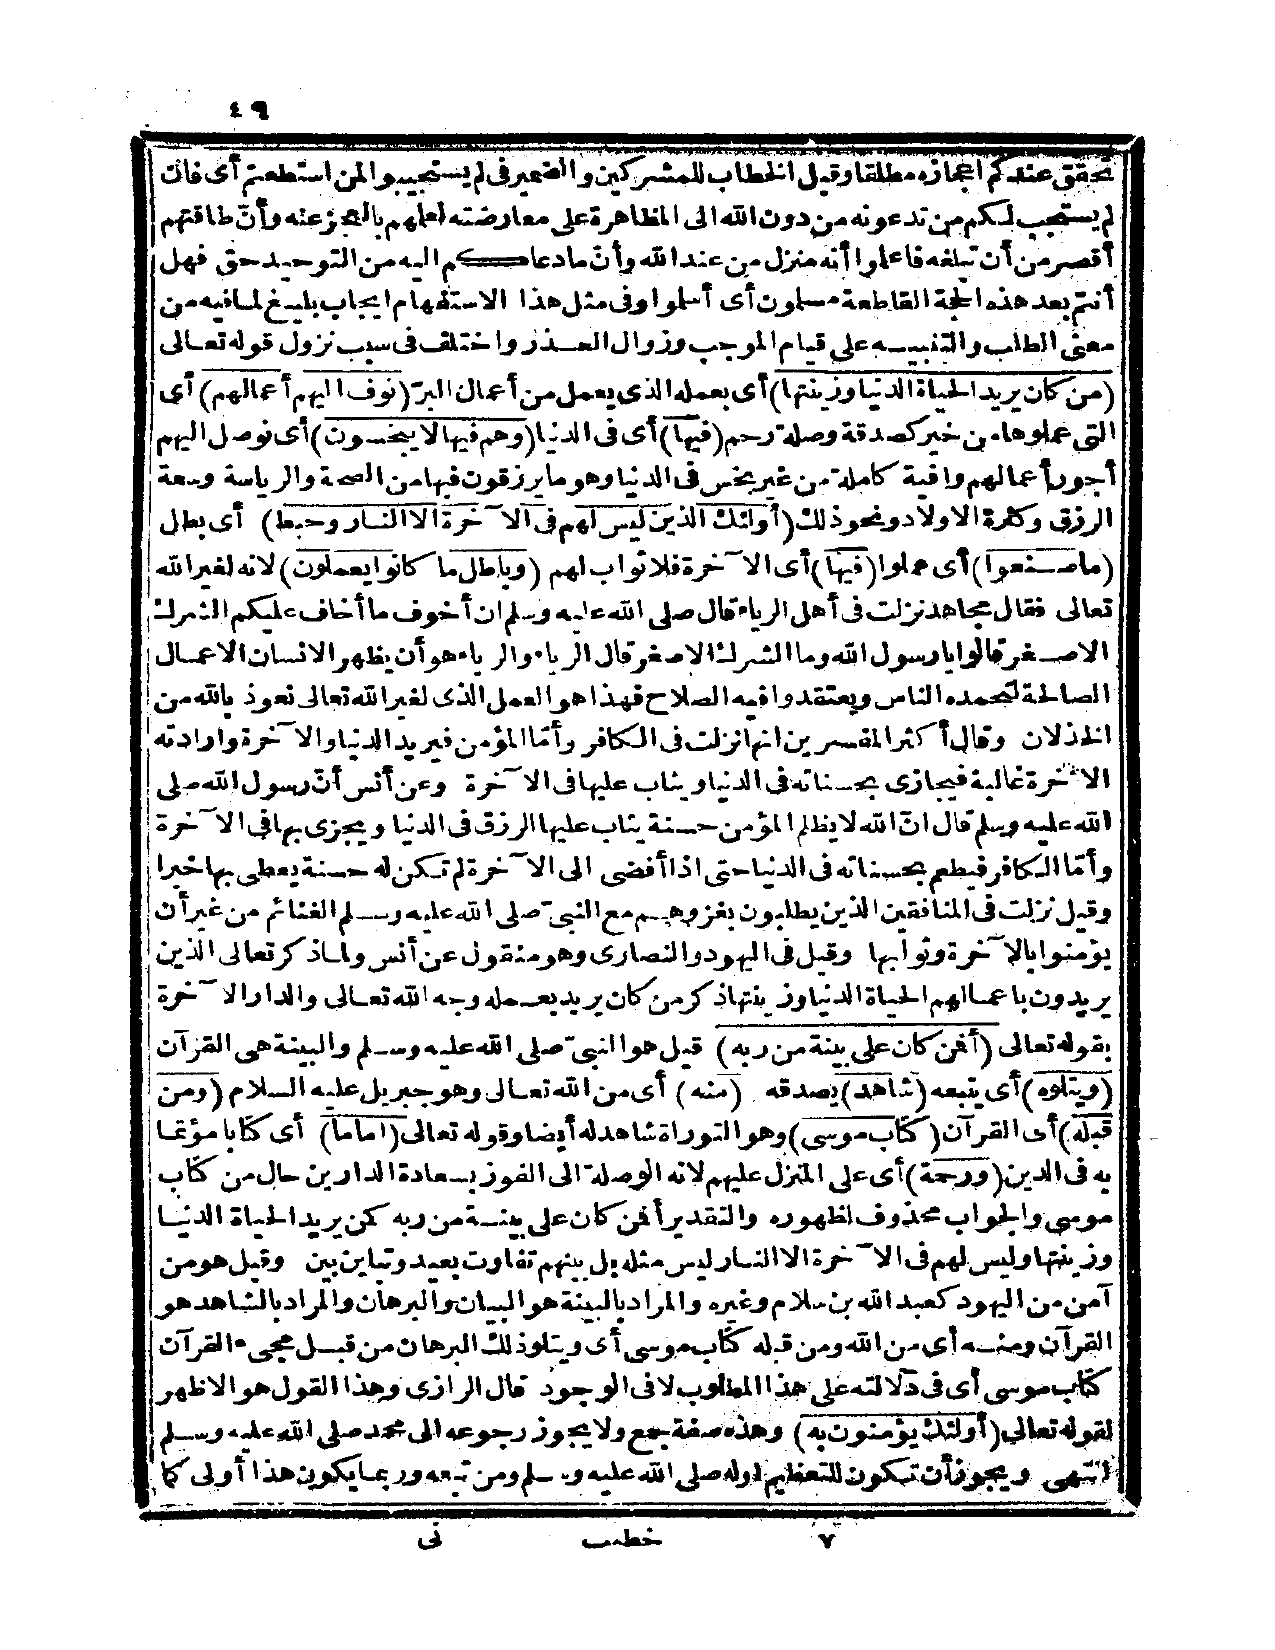 ٤٩
تحقق عندكم اعجازه مطلقا وقيل الخطاب للمشركين والضمير فى لم يستجيبوا لمن استطعتم أى فان
لم يستجب لكم من تدعونه من دون الله الى المظاهرة على معارضته لعلهم بالعجز عنه وأنّ طاقتهم
أقصر من أن تبلغه فاعلموا أنه منزل من عند الله وأنّ ما دعاكم اليه من التوحيد حق فهل
أنتم بعد هذه الحجة القاطعة مسلمون أى أسلموا وفى مثل هذا الاستفهام ايجاب بليغ لما فيه من
معنى الطلب والتنبيه على قيام الموجب وزوال العذر واختلف فى سبب نزول قوله تعالى
(من كان يريد الحياة الدنيا وزينتها) أى بعمله الذى يعمل من أعمال البرّ (نوف اليهم أعمالهم) أى
التى عملوها من خير كصدقة وصلة رحم (فيها) أى فى الدنيا (وهم فيها لا يبخسون) أى نوصل اليهم
أجور أعمالهم وافية كاملة من غير بخس فى الدنيا وهو ما يرزقون فيها من الصحة والرياسة وسعة
الرزق وكثرة الاولاد ونحو ذلك (أولئك الذين ليس لهم فى الآخرة الا النار وحبط) أى بطل
(ما صنعوا) أى عملوا (فيها) أى الآخرة فلا ثواب لهم (وباطل ما كانوا يعملون) لانه لغير الله
تعالى فقال مجاهد نزلت فى أهل الرياء قال صلى الله عليه وسلم ان أخوف ما أخاف عليكم الشرك
الاصغر قالوا يا رسول الله وما الشرك الاصغر قال الرياء والرياء هو أن يظهر الانسان الاعمال
الصالحة لتحمده الناس ويعتقدوا فيه الصلاح فهذا هو العمل الذى لغير الله تعالى نعوذ بالله من
الخذلان وقال أكثر المفسرين انها نزلت فى الكافر وأمّا المؤمن فيريد الدنيا والآخرة وارادته
الآخرة غالبة فيجازى بحسناته فى الدنيا ويثاب عليها فى الآخرة وعن أنس أنّ رسول الله صلى
الله عليه وسلم قال انّ الله لا يظلم المؤمن حسنة يثاب عليها الرزق فى الدنيا ويجزى بها فى الآخرة
وأمّا الكافر فيطعم بحسناته فى الدنيا حتى اذا أفضى الى الآخرة لم تكن له حسنة يعطى بها خيرا
وقيل نزلت فى المنافقين الذين يطلبون بغزوهم مع النبىّ صلى الله عليه وسلم الغنائم من غير أن
يؤمنوا بالآخرة وثوابها وقيل فى اليهود والنصارى وهو منقول عن أنس ولما ذكر تعالى الذين
يريدون باعمالهم الحياة الدنيا وزينتها ذكر من كان يريد بعمله وجه الله تعالى والدار الآخرة
بقوله تعالى (أفمن كان على بينة من ربه) قيل هو النبىّ صلى الله عليه وسلم والبينة هى القرآن
(ويتلوه) أى يتبعه (شاهد) يصدقه (منه) أى من الله تعالى وهو جبريل عليه السلام (ومن
قبله) أى القرآن (كتاب موسى) وهو التوراة شاهد له أيضا وقوله تعالى (اماما) أى كتابا مؤتما
به فى الدين (ورحمة) أى على المنزل عليهم لانه الوصلة الى الفوز بسعادة الدارين حال من كتاب
موسى والجواب محذوف لظهوره والتقدير أفمن كان على بينة من ربه كمن يريد الحياة الدنيا
وزينتها وليس لهم فى الآخرة الا النار ليس مثله بل بينهم تفاوت بعيد وتباين بين وقيل هو من
آمن من اليهود كعبد الله بن سلام وغيره والمراد بالبينة هو البيان والبرهان والمراد بالشاهد هو
القرآن ومنه أى من الله ومن قبله كتاب موسى أى ويتلو ذلك البرهان من قبل مجىء القرآن
كتاب موسى أى فى دلالته على هذا المطلوب لا فى الوجود قال الرازى وهذا القول هو الاظهر
لقوله تعالى (أولئك يؤمنون به) وهذه صفة جمع ولا يجوز رجوعه الى محمد صلى الله عليه وسلم
انتهى ويجوز أن تكون للتعظيم له صلى الله عليه وسلم ومن تبعه وربما يكون هذا أولى كما
٧ خطيب نى